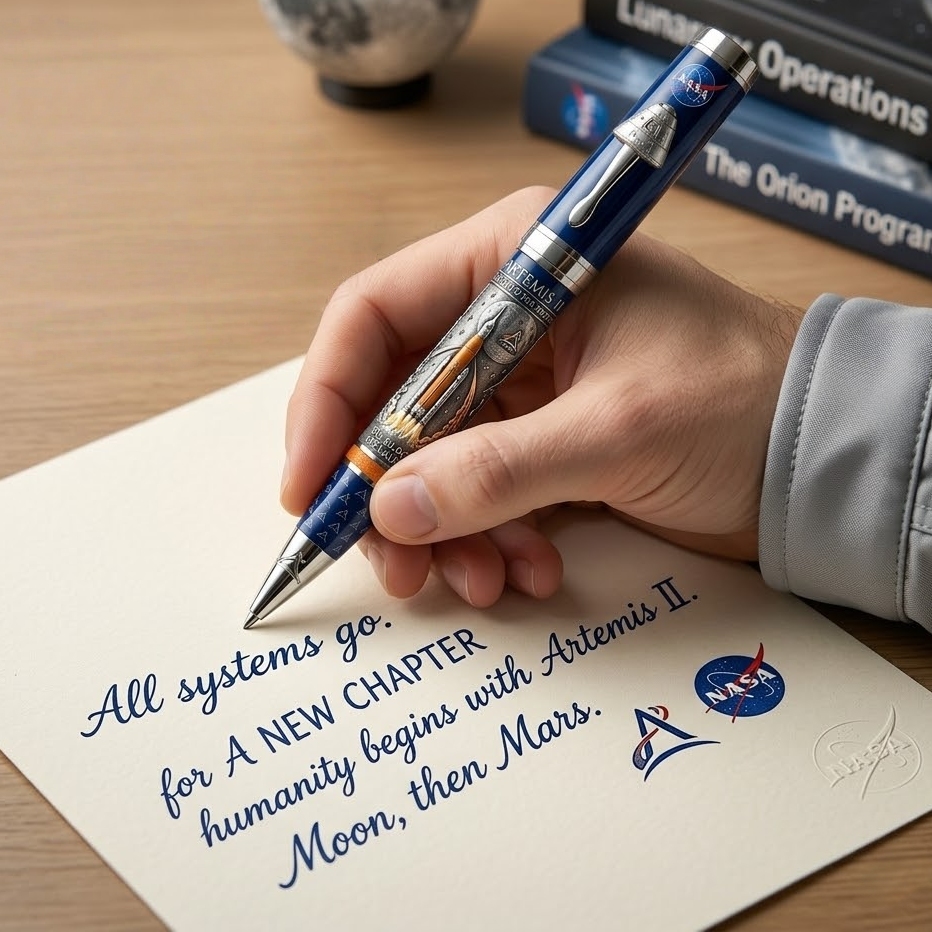 Lunar Operations
The Orion Program
NASA
ARTEMIS II
All systems go.
for A NEW CHAPTER
humanity begins with Artemis II.
Moon, then Mars.
NASA
NASA